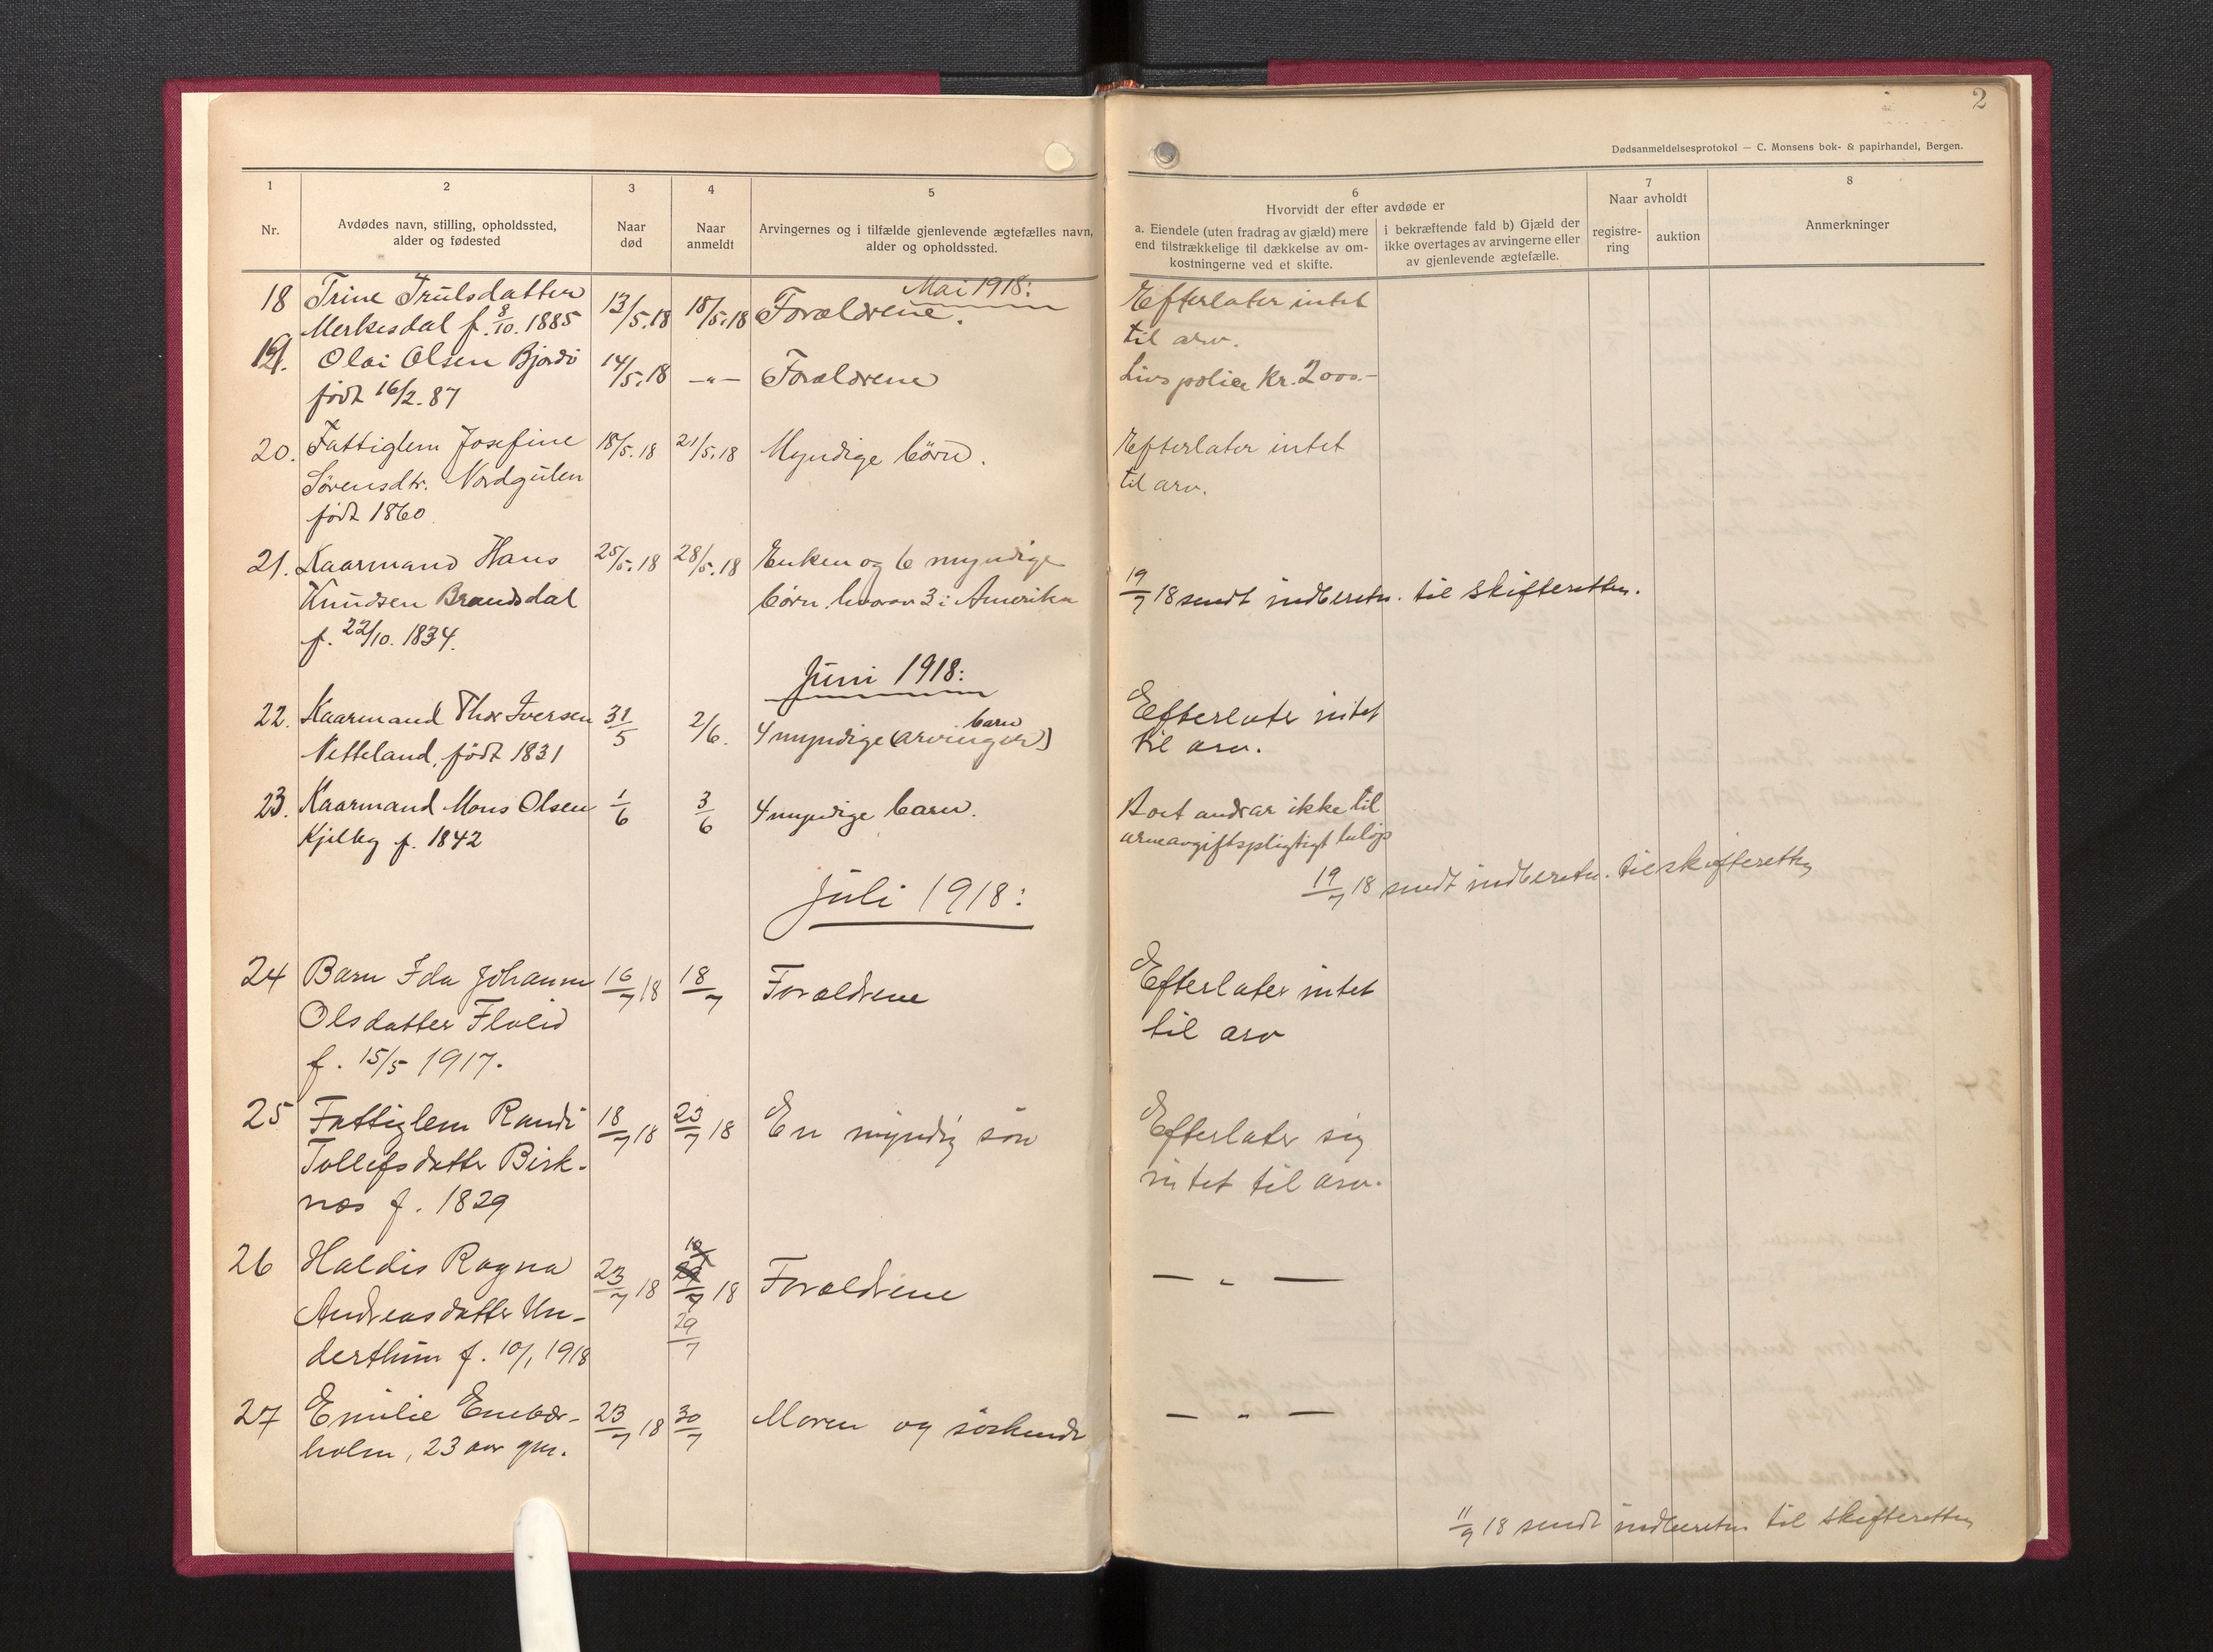 2
Dødsanmeldelsesprotokol — C. Monsens bok- & papirhandel, Bergen.
1
Nr.
2
Avdødes navn, stilling, opholdssted,
alder og fødested
3
Naar
død
4
Naar
anmeldt
5
Arvingernes og i tilfælde gjenlevende ægtefælles navn,
alder og opholdssted.
6
Hvorvidt der efter avdøde er
a. Eiendele (uten fradrag av gjæld) mere
end tilstrækkelige til dækkelse av om-
kostningerne ved et skifte.
i bekræftende fald b) Gjæld der
ikke overtages av arvingerne eller
av gjenlevende ægtefælle.
7
Naar avholdt
registre-
ring
auktion
8
Anmerkninger
Mai 1918:
18 Trine Trulsdatter 13/5.18 18/5.18 Forældrene. Efterlater intet
Merkesdal f. 8/10. 1885 til arv.
19. Olai Olsen Bjordi 14/5.18 —"— Forældrene Livspolice Kr. 2000.-
født 16/2.87
20. Fattiglem Josefine 18/5.18 21/5.18 Myndige børn. Efterlater intet
Sørensdtr. Nordgulen til arv.
født 1860
21. Kaarmand Hans 25/5.18 28/5.18 Enken og 6 myndige
Knudsen Brandsdal børn, hvorav 3 i Amerika 19/7 18 sendt indberetn. til skifteretten.
f. 22/10. 1834.
Juni 1918:
22. Kaarmand Thor Iversen 31/5 2/6. 4 myndige (arvinger) barn Efterlater intet
Netteland, født 1831 til arv.
23. Kaarmand Mons Olsen 1/6 3/6 4 myndige barn. Boet andrar ikke til
Kjelby f. 1842 arveavgiftspligtigt beløp
19/7 18 sendt indberetn. til skifteretten
Juli 1918:
24 Barn Ida Johanne 16/7 18 18/7 Forældrene Efterlater intet
Olsdatter Flolid til arv
f. 15/5 1917.
25 Fattiglem Randi 18/7 18 23/7 18 En myndig søn Efterlater sig
Tollefsdatter Birk- intet til arv.
nes f. 1829
26 Haldis Ragna 23/7 18 /7 18 Forældrene — " —
Andreasdatter Un- 29/7
derthun f. 10/1 1918
27 Emilie Enebær- 23/7 18 30/7 Moren og søskende — " —
holm, 23 aar gm.
11/9 18 sendt indberetn til skifteretten